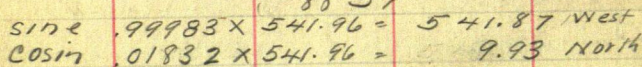 sine .99983 x 541.96 = 541.87 West
Cosin .01832 x 541.96 = 9.93 North